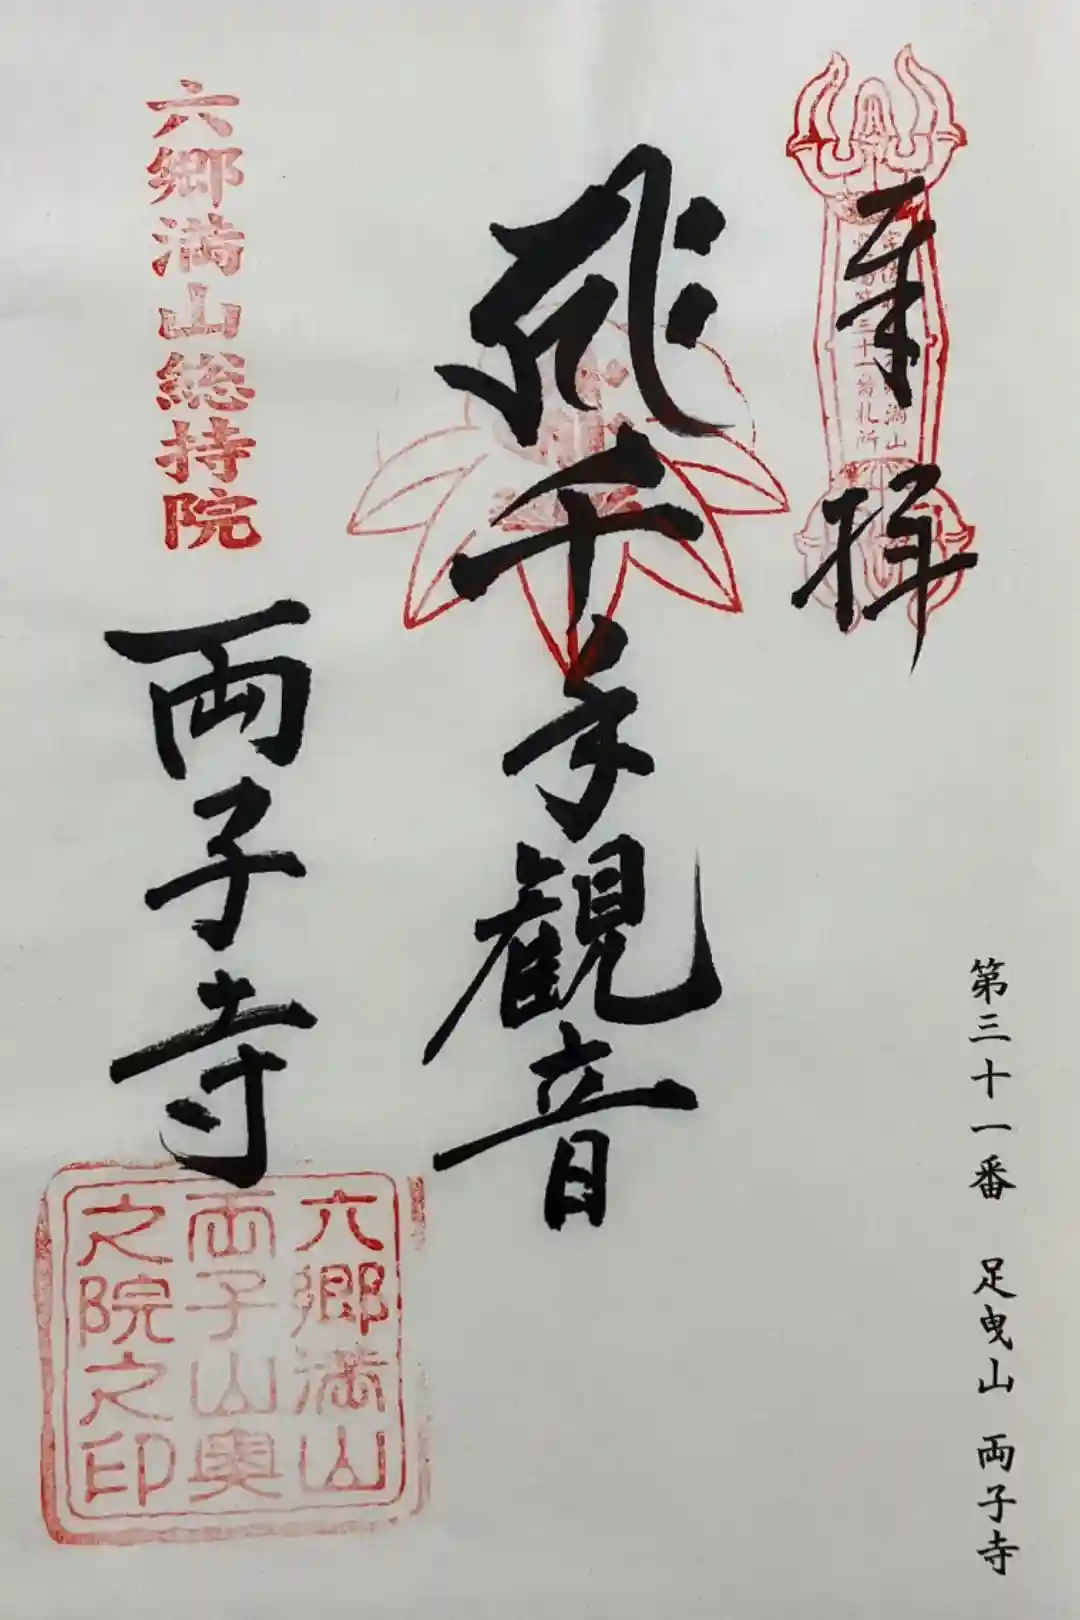 第三十一番　足曳山　両子寺
奉拝
満山
三十一番札所
千手観音
六郷満山総持院
両子寺
六郷満山
両子山奥
之院之印